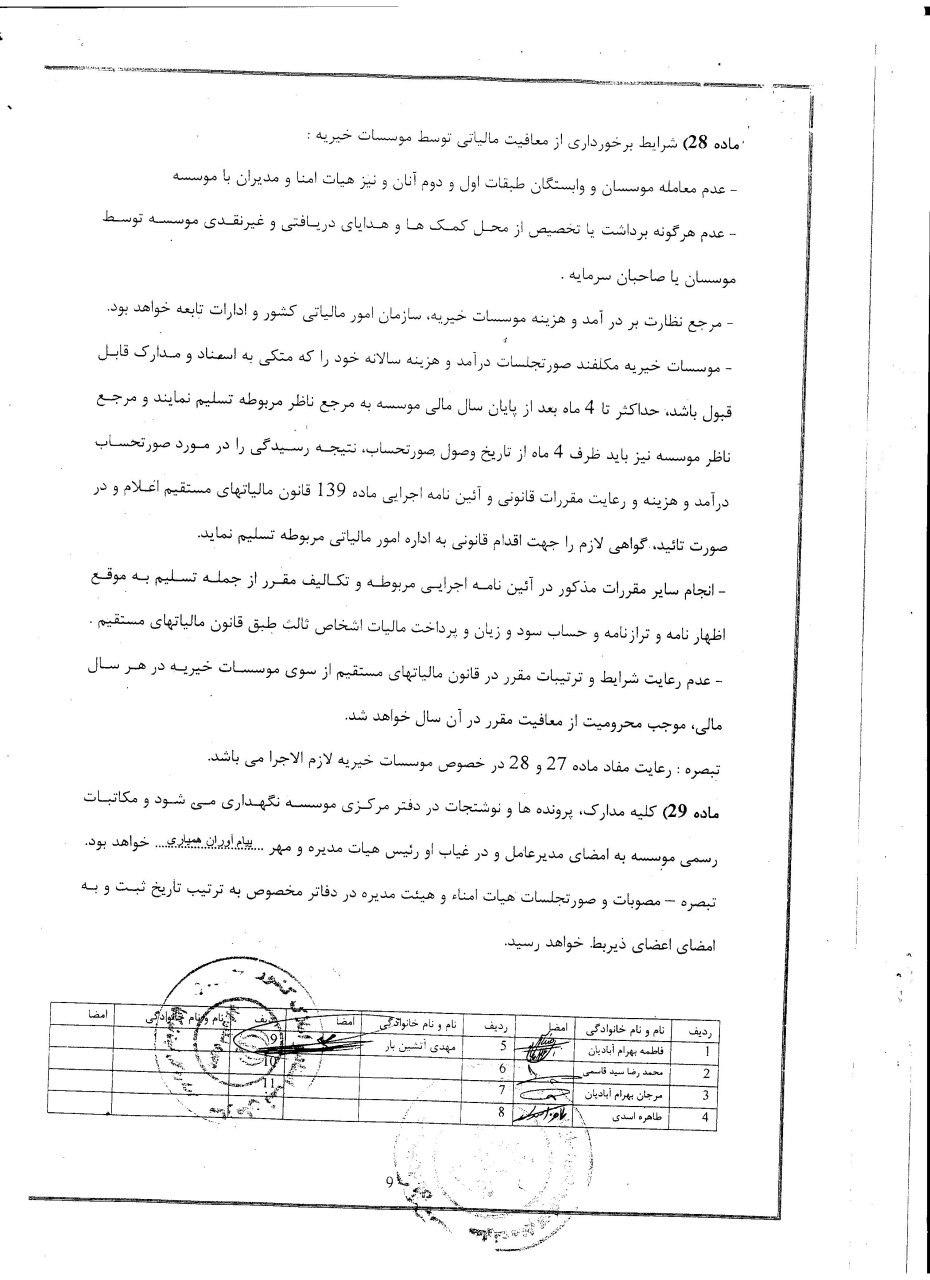 ماده 28) شرایط برخورداری از معافیت مالیاتی توسط موسسات خیریه :
- عدم معامله موسسان و وابستگان طبقات اول و دوم آنان و نیز هیات امنا و مدیران با موسسه
- عدم هرگونه برداشت یا تخصیص از محل کمک ها و هدایای دریافتی و غیرنقدی موسسه توسط
موسسان یا صاحبان سرمایه .
- مرجع نظارت بر در آمد و هزینه موسسات خیریه، سازمان امور مالیاتی کشور و ادارات تابعه خواهد بود.
- موسسات خیریه مکلفند صورتجلسات درآمد و هزینه سالانه خود را که متکی به اسناد و مدارک قابل
قبول باشد، حداکثر تا 4 ماه بعد از پایان سال مالی موسسه به مرجع ناظر مربوطه تسلیم نمایند و مرجع
ناظر موسسه نیز باید ظرف 4 ماه از تاریخ وصول صورتحساب، نتیجه رسیدگی را در مورد صورتحساب
درآمد و هزینه و رعایت مقررات قانونی و آئین نامه اجرایی ماده 139 قانون مالیاتهای مستقیم اعلام و در
صورت تائید، گواهی لازم را جهت اقدام قانونی به اداره امور مالیاتی مربوطه تسلیم نماید.
- انجام سایر مقررات مذکور در آئین نامه اجرایی مربوطه و تکالیف مقرر از جمله تسلیم به موقع
اظهار نامه و ترازنامه و حساب سود و زیان و پرداخت مالیات اشخاص ثالث طبق قانون مالیاتهای مستقیم .
- عدم رعایت شرایط و ترتیبات مقرر در قانون مالیاتهای مستقیم از سوی موسسات خیریه در هر سال
مالی، موجب محرومیت از معافیت مقرر در آن سال خواهد شد.
تبصره : رعایت مفاد ماده 27 و 28 در خصوص موسسات خیریه لازم الاجرا می باشد.
ماده 29) کلیه مدارک، پرونده ها و نوشتجات در دفتر مرکزی موسسه نگهداری می شود و مکاتبات
رسمی موسسه به امضای مدیرعامل و در غیاب او رئیس هیات مدیره و مهر ...پیام آوران همیاری... خواهد بود.
تبصره – مصوبات و صورتجلسات هیات امناء و هیئت مدیره در دفاتر مخصوص به ترتیب تاریخ ثبت و به
امضای اعضای ذیربط خواهد رسید.
ردیف نام و نام خانوادگی امضا ردیف نام و نام خانوادگی امضا ردیف نام و نام خانوادگی امضا
1 فاطمه بهرام آبادیان 5 مهدی آتشین بار 9
2 محمد رضا سید قاسمی 6 10
3 مرجان بهرام آبادیان 7 11
4 طاهره اسدی 8
9